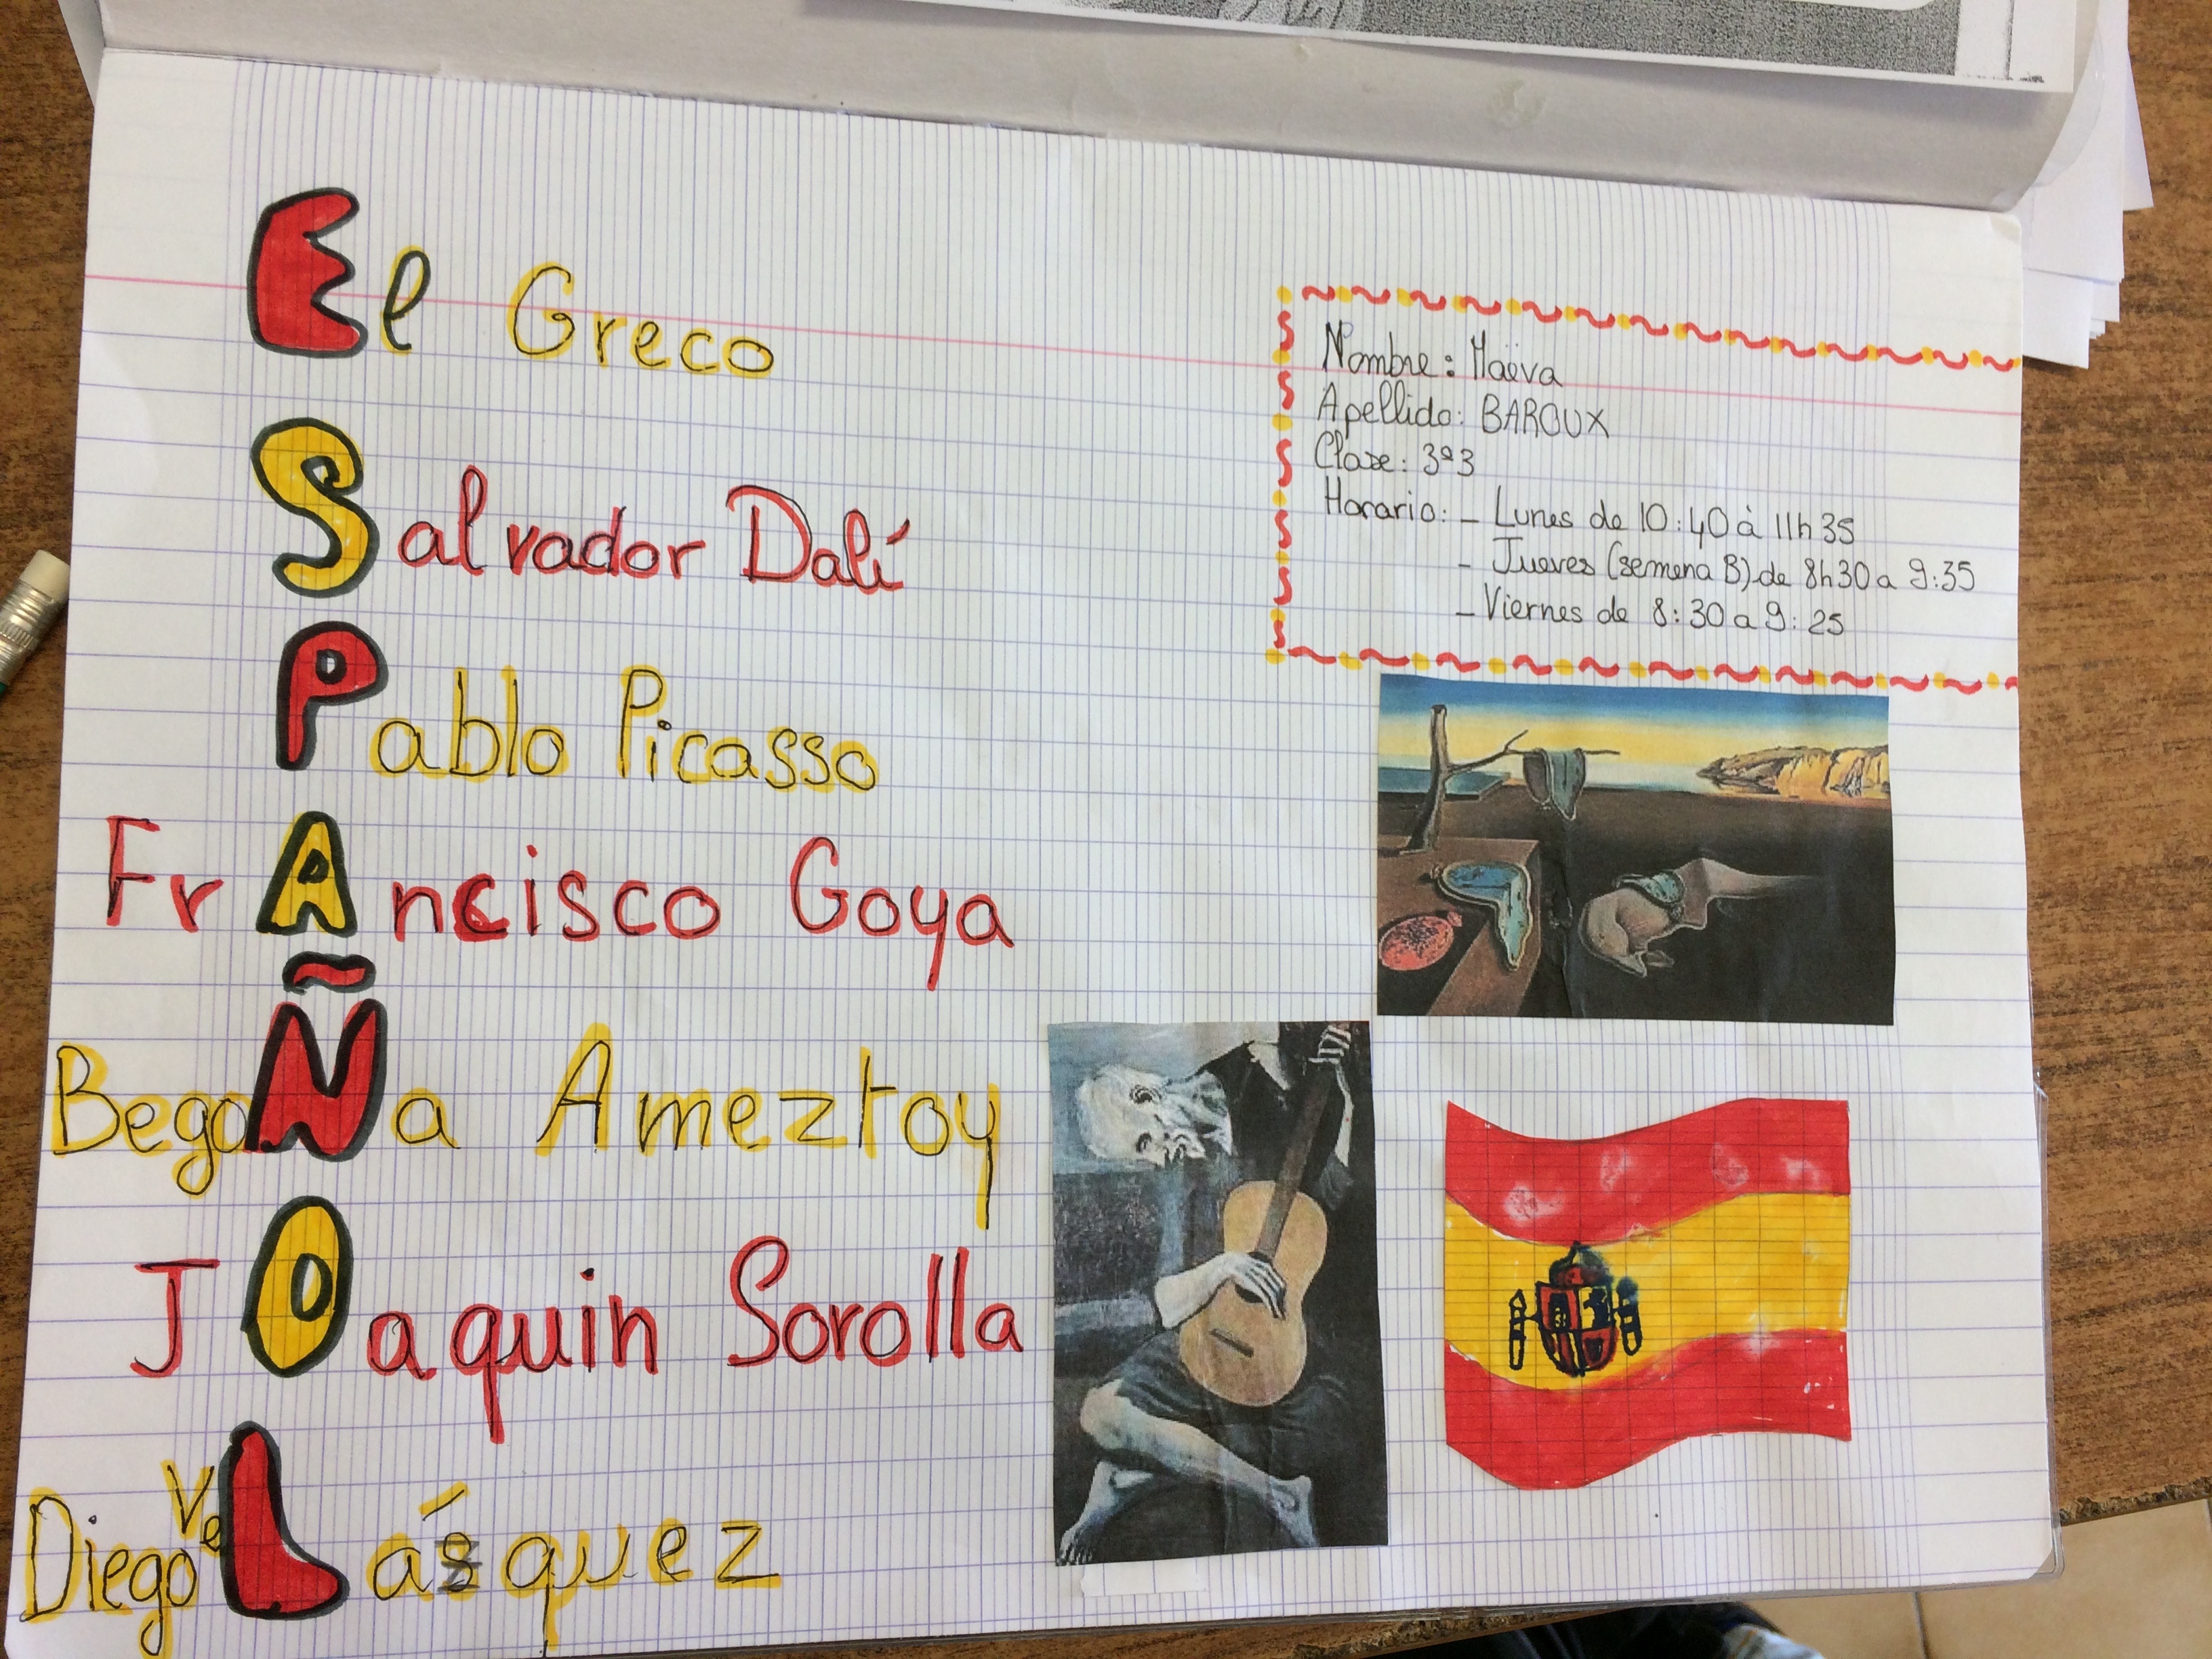 El Greco
Salvador Dalí
Pablo Picasso
FrAncisco Goya
BegoÑa Ameztoy
JOaquin Sorolla
Diego VeLásquez
Nombre: Maëva
Apellido: BAROUX
Clase: 3ª3
Horario: - Lunes de 10:40 à 11h35
- Jueves (semena B) de 8h30 a 9:35
- Viernes de 8:30 a 9:25